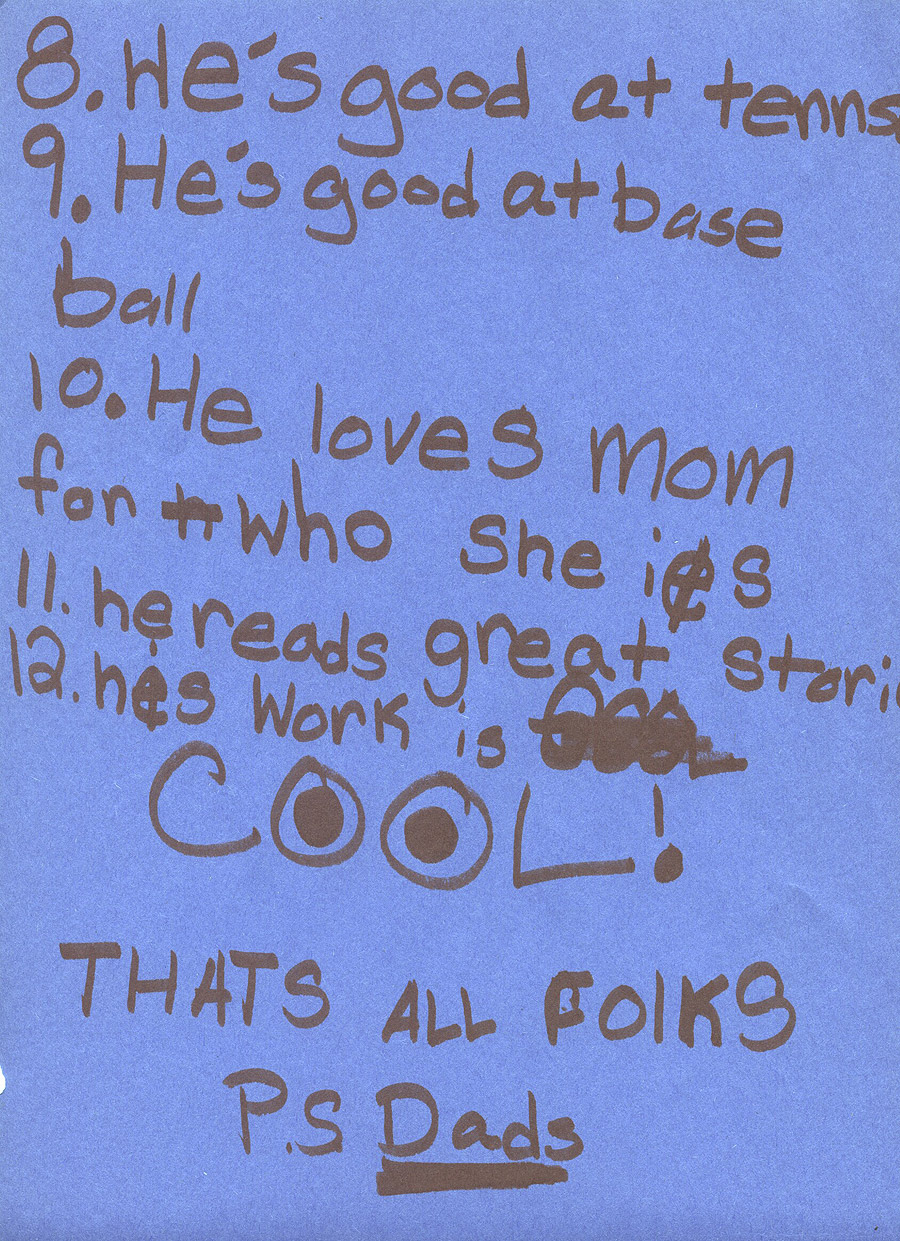 8. He's good at tenns
9. He's good at base
ball
10. He loves mom
for who she is
11. he reads great stori
12. his work is
COOL!
THATS ALL FOLKS
P.S Dads